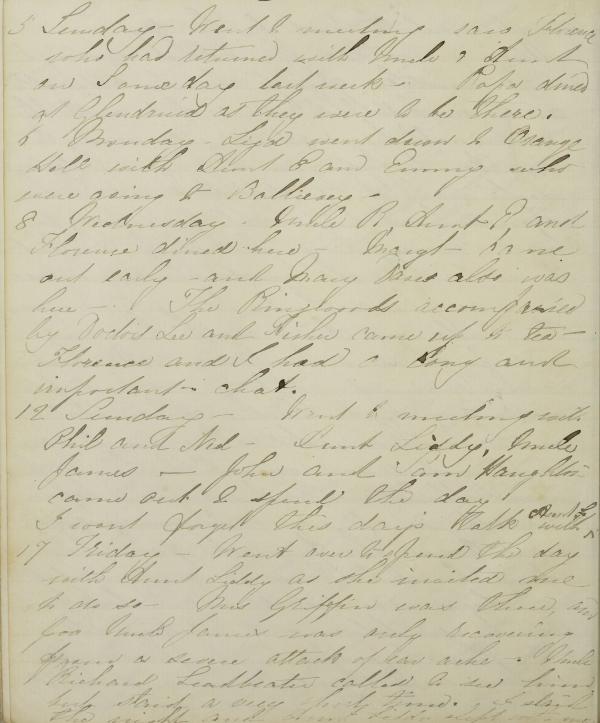 5 Sunday - Went to meeting saw Florence
who had returned with Uncle & Aunt
on Someday last week - Papa dined
at Glendruid as they were to be there.
6 Monday - Lyd went down to Orange
Hill with Aunt E and Emmy who
were going to
8 Wednesday - Uncle R, Aunt P, and
Florence dined here - Margt came
out early - and Mary also was
here - The Ringwoods accompanied
by Doctor Lee and Fisher came up to tea -
Florence and I had a long and
important - chat.
12 Sunday - Went to meeting with
Phil and Ned - Aunt Liddy, Uncle
James - John and Sam Haughton
came out to spend the day
I wont forget this days talk with Aunt L
17 Friday - Went over to spend the day
with Aunt Liddy as she invited me
to do so - Mrs Griffin was there, and
poor Uncle James was only recovering
from a severe attack of ear ache - Uncle
Richard Leadbeater called to see him
but staid a very short time. I staid
the night and